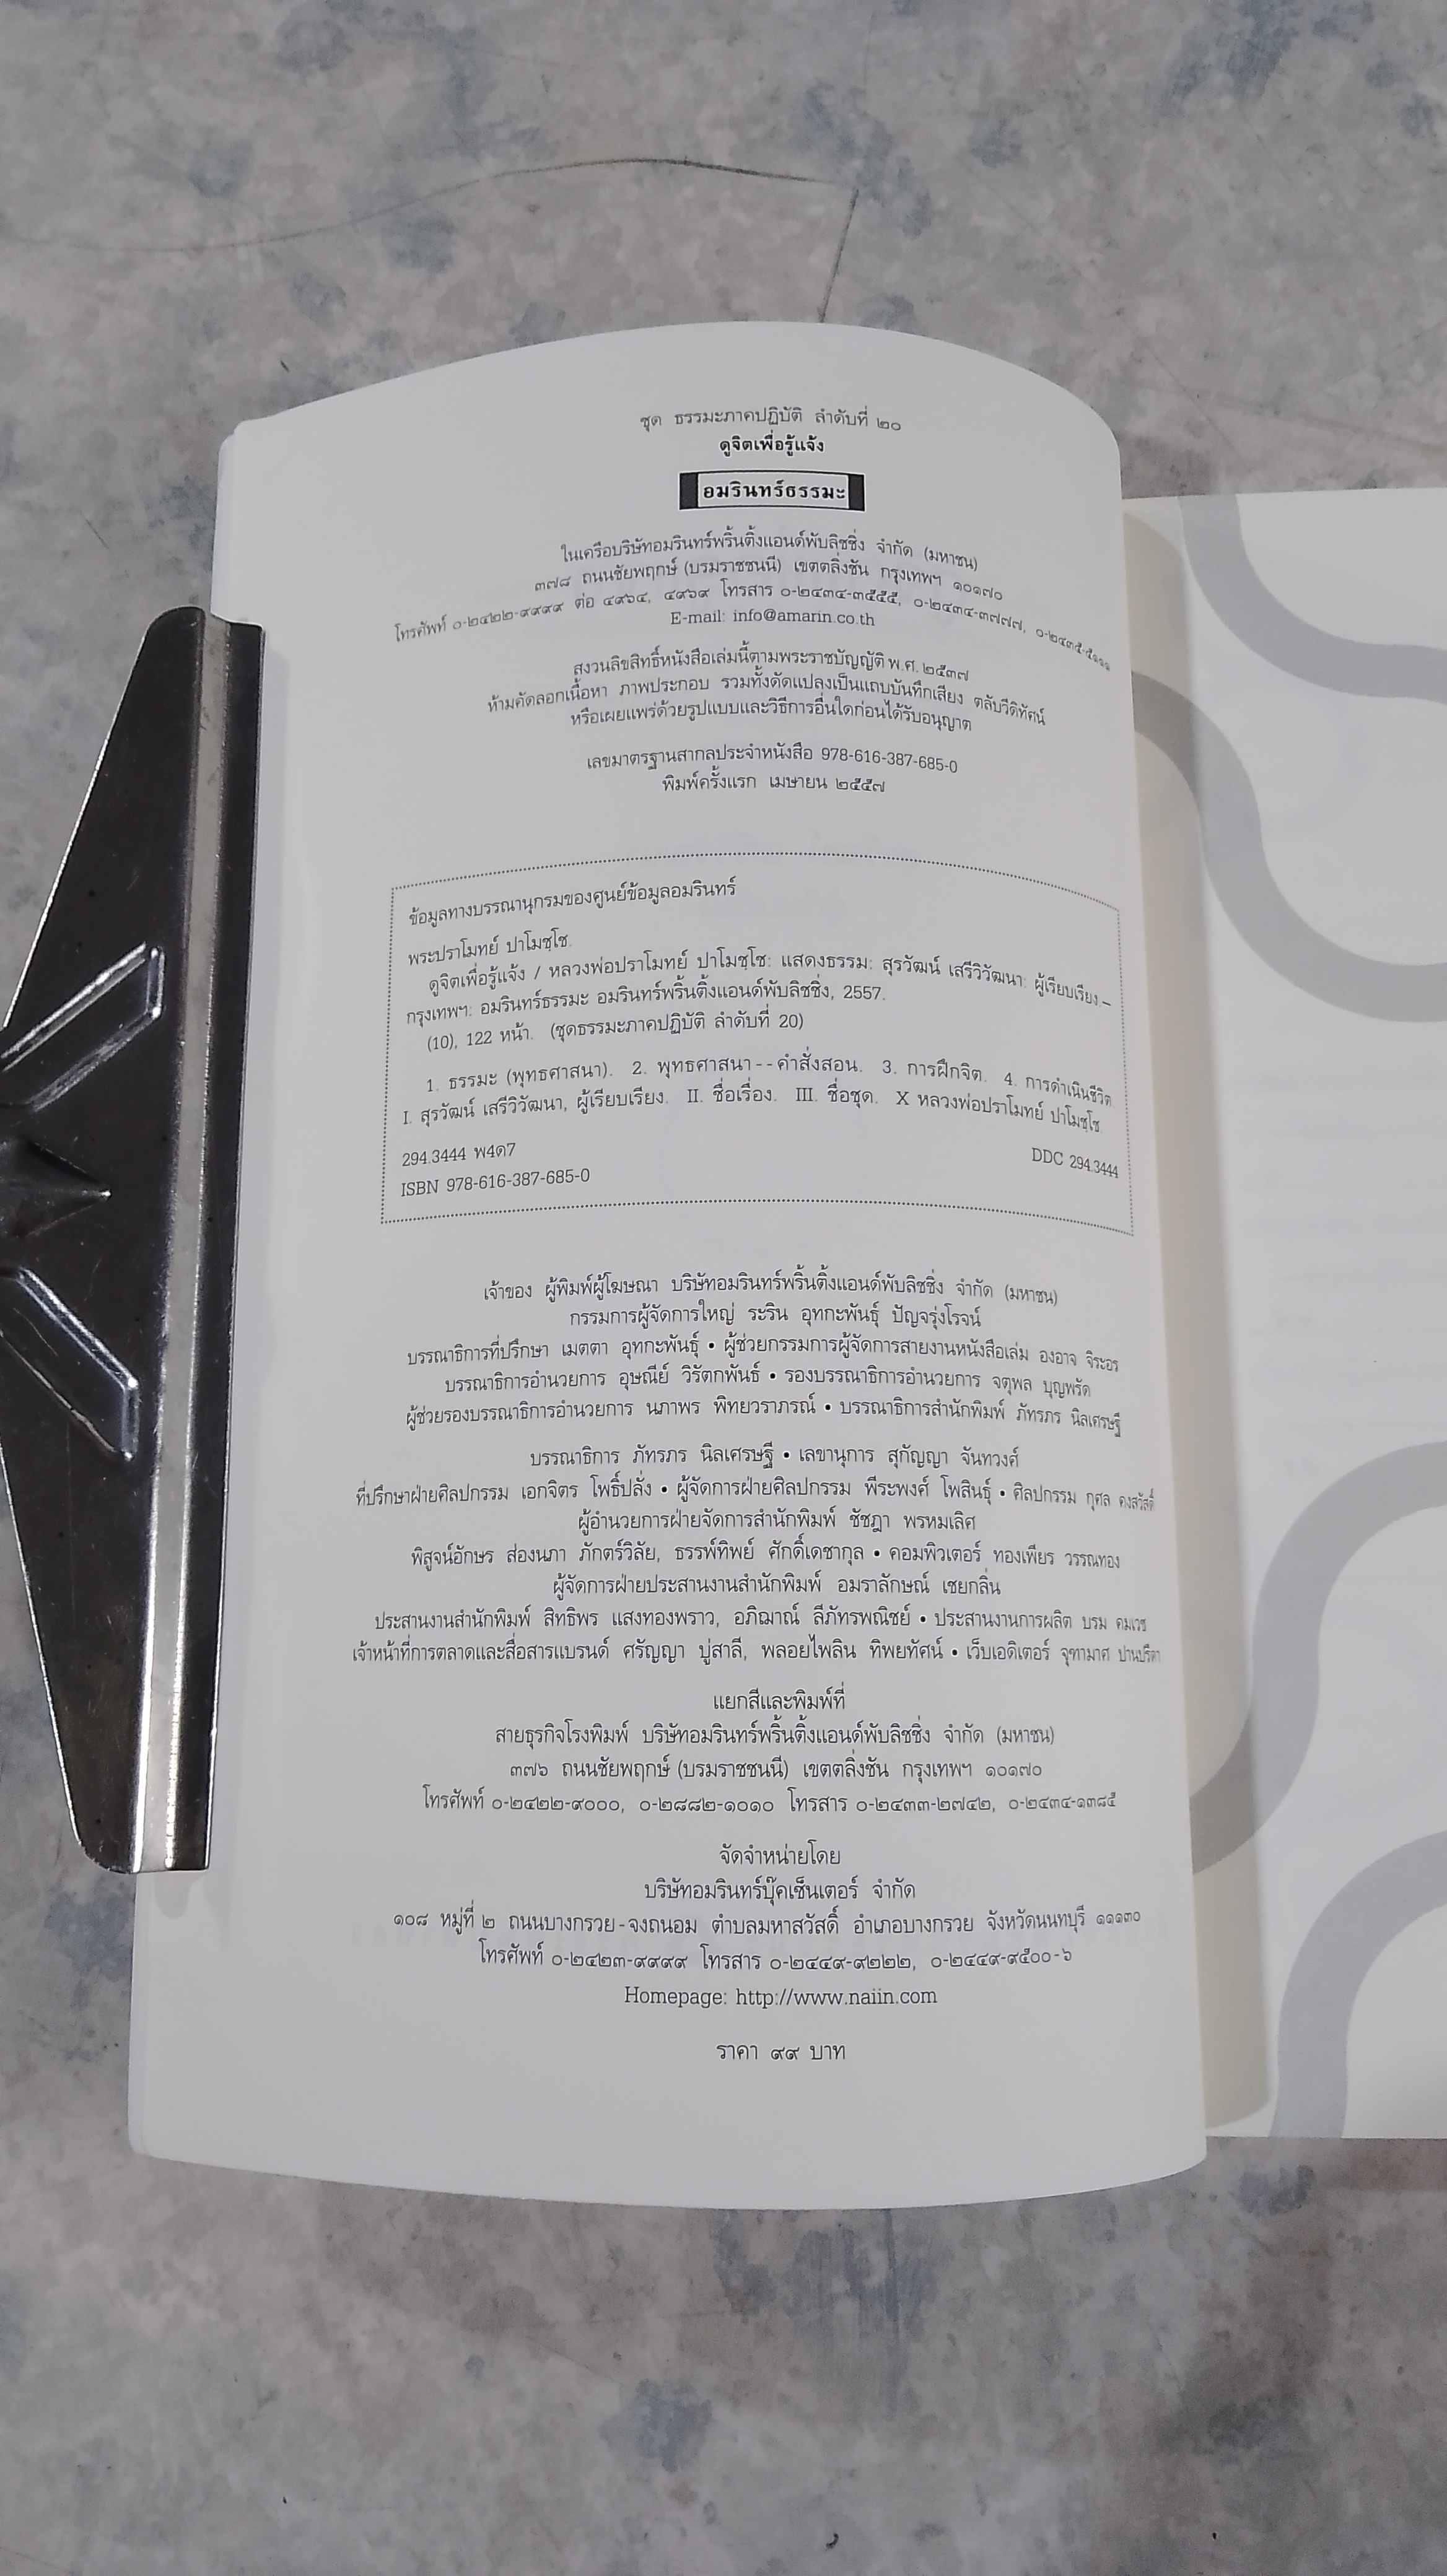 ชุด ธรรมะภาคปฏิบัติ ลำดับที่ ๒๐
ดูจิตเพื่อรู้แจ้ง
อมรินทร์ธรรมะ
ในเครือบริษัทอมรินทร์พริ้นติ้งแอนด์พับลิชชิ่ง จำกัด (มหาชน)
๓๗๘ ถนนชัยพฤกษ์ (บรมราชชนนี) เขตตลิ่งชัน กรุงเทพฯ ๑๐๑๗๐
โทรศัพท์ ๐-๒๔๒๒-๙๙๙๙ ต่อ ๔๙๖๔, ๔๙๖๙ โทรสาร ๐-๒๔๓๔-๓๕๕๕, ๐-๒๔๓๔-๓๗๗๗, ๐-๒๔๓๕-๕๑๑๑
E-mail: info@amarin.co.th
สงวนลิขสิทธิ์หนังสือเล่มนี้ตามพระราชบัญญัติ พ.ศ. ๒๕๓๗
ห้ามคัดลอกเนื้อหา ภาพประกอบ รวมทั้งดัดแปลงเป็นแถบบันทึกเสียง ตลับวีดิทัศน์
หรือเผยแพร่ด้วยรูปแบบและวิธีการอื่นใดก่อนได้รับอนุญาต
เลขมาตรฐานสากลประจำหนังสือ 978-616-387-685-0
พิมพ์ครั้งแรก เมษายน ๒๕๕๗
ข้อมูลทางบรรณานุกรมของศูนย์ข้อมูลอมรินทร์
พระปราโมทย์ ปาโมชฺโช.
ดูจิตเพื่อรู้แจ้ง / หลวงพ่อปราโมทย์ ปาโมชฺโช: แสดงธรรม: สุรวัฒน์ เสรีวิวัฒนา: ผู้เรียบเรียง –
กรุงเทพฯ: อมรินทร์ธรรมะ อมรินทร์พริ้นติ้งแอนด์พับลิชชิ่ง, 2557.
(10), 122 หน้า. (ชุดธรรมะภาคปฏิบัติ ลำดับที่ 20)
1. ธรรมะ (พุทธศาสนา). 2. พุทธศาสนา--คำสั่งสอน. 3. การฝึกจิต. 4. การดำเนินชีวิต.
I. สุรวัฒน์ เสรีวิวัฒนา, ผู้เรียบเรียง. II. ชื่อเรื่อง. III. ชื่อชุด. X หลวงพ่อปราโมทย์ ปาโมชฺโช.
294.3444 พ4ด7 DDC 294.3444
ISBN 978-616-387-685-0
เจ้าของ ผู้พิมพ์ผู้โฆษณา บริษัทอมรินทร์พริ้นติ้งแอนด์พับลิชชิ่ง จำกัด (มหาชน)
กรรมการผู้จัดการใหญ่ ระริน อุทกะพันธุ์ ปัญจรุ่งโรจน์
บรรณาธิการที่ปรึกษา เมตตา อุทกะพันธุ์ • ผู้ช่วยกรรมการผู้จัดการสายงานหนังสือเล่ม องอาจ จิระอร
บรรณาธิการอำนวยการ อุษณีย์ วิรัตกพันธ์ • รองบรรณาธิการอำนวยการ จตุพล บุญพรัด
ผู้ช่วยรองบรรณาธิการอำนวยการ นภาพร พิทยวราภรณ์ • บรรณาธิการสำนักพิมพ์ ภัทรภร นิลเศรษฐี
บรรณาธิการ ภัทรภร นิลเศรษฐี • เลขานุการ สุกัญญา จันทวงศ์
ที่ปรึกษาฝ่ายศิลปกรรม เอกจิตร โพธิ์ปลั่ง • ผู้จัดการฝ่ายศิลปกรรม พีระพงศ์ โพสินธุ์ • ศิลปกรรม กุศล คงสวัสดิ์
ผู้อำนวยการฝ่ายจัดการสำนักพิมพ์ ชัชฎา พรหมเลิศ
พิสูจน์อักษร ส่องนภา ภักตร์วิลัย, ธรรพ์ทิพย์ ศักดิ์เดชากุล • คอมพิวเตอร์ ทองเพียร วรรณทอง
ผู้จัดการฝ่ายประสานงานสำนักพิมพ์ อมราลักษณ์ เชยกลิ่น
ประสานงานสำนักพิมพ์ สิทธิพร แสงทองพราว, อภิฌาณ์ ลีภัทรพณิชย์ • ประสานงานการผลิต บรม คมเวช
เจ้าหน้าที่การตลาดและสื่อสารแบรนด์ ศรัญญา ปู่สาลี, พลอยไพลิน ทิพยทัศน์ • เว็บเอดิเตอร์ จุฑามาศ
แยกสีและพิมพ์ที่
สายธุรกิจโรงพิมพ์ บริษัทอมรินทร์พริ้นติ้งแอนด์พับลิชชิ่ง จำกัด (มหาชน)
๓๗๖ ถนนชัยพฤกษ์ (บรมราชชนนี) เขตตลิ่งชัน กรุงเทพฯ ๑๐๑๗๐
โทรศัพท์ ๐-๒๔๒๒-๙๐๐๐, ๐-๒๘๘๒-๑๐๑๐ โทรสาร ๐-๒๔๓๓-๒๗๔๒, ๐-๒๔๓๔-๑๓๘๕
จัดจำหน่ายโดย
บริษัทอมรินทร์บุ๊คเซ็นเตอร์ จำกัด
๑๐๘ หมู่ที่ ๒ ถนนบางกรวย-จงถนอม ตำบลมหาสวัสดิ์ อำเภอบางกรวย จังหวัดนนทบุรี ๑๑๑๓๐
โทรศัพท์ ๐-๒๔๒๓-๙๙๙๙ โทรสาร ๐-๒๔๔๙-๙๒๒๒, ๐-๒๔๔๙-๙๕๐๐-๖
Homepage: http://www.naiin.com
ราคา ๙๙ บาท